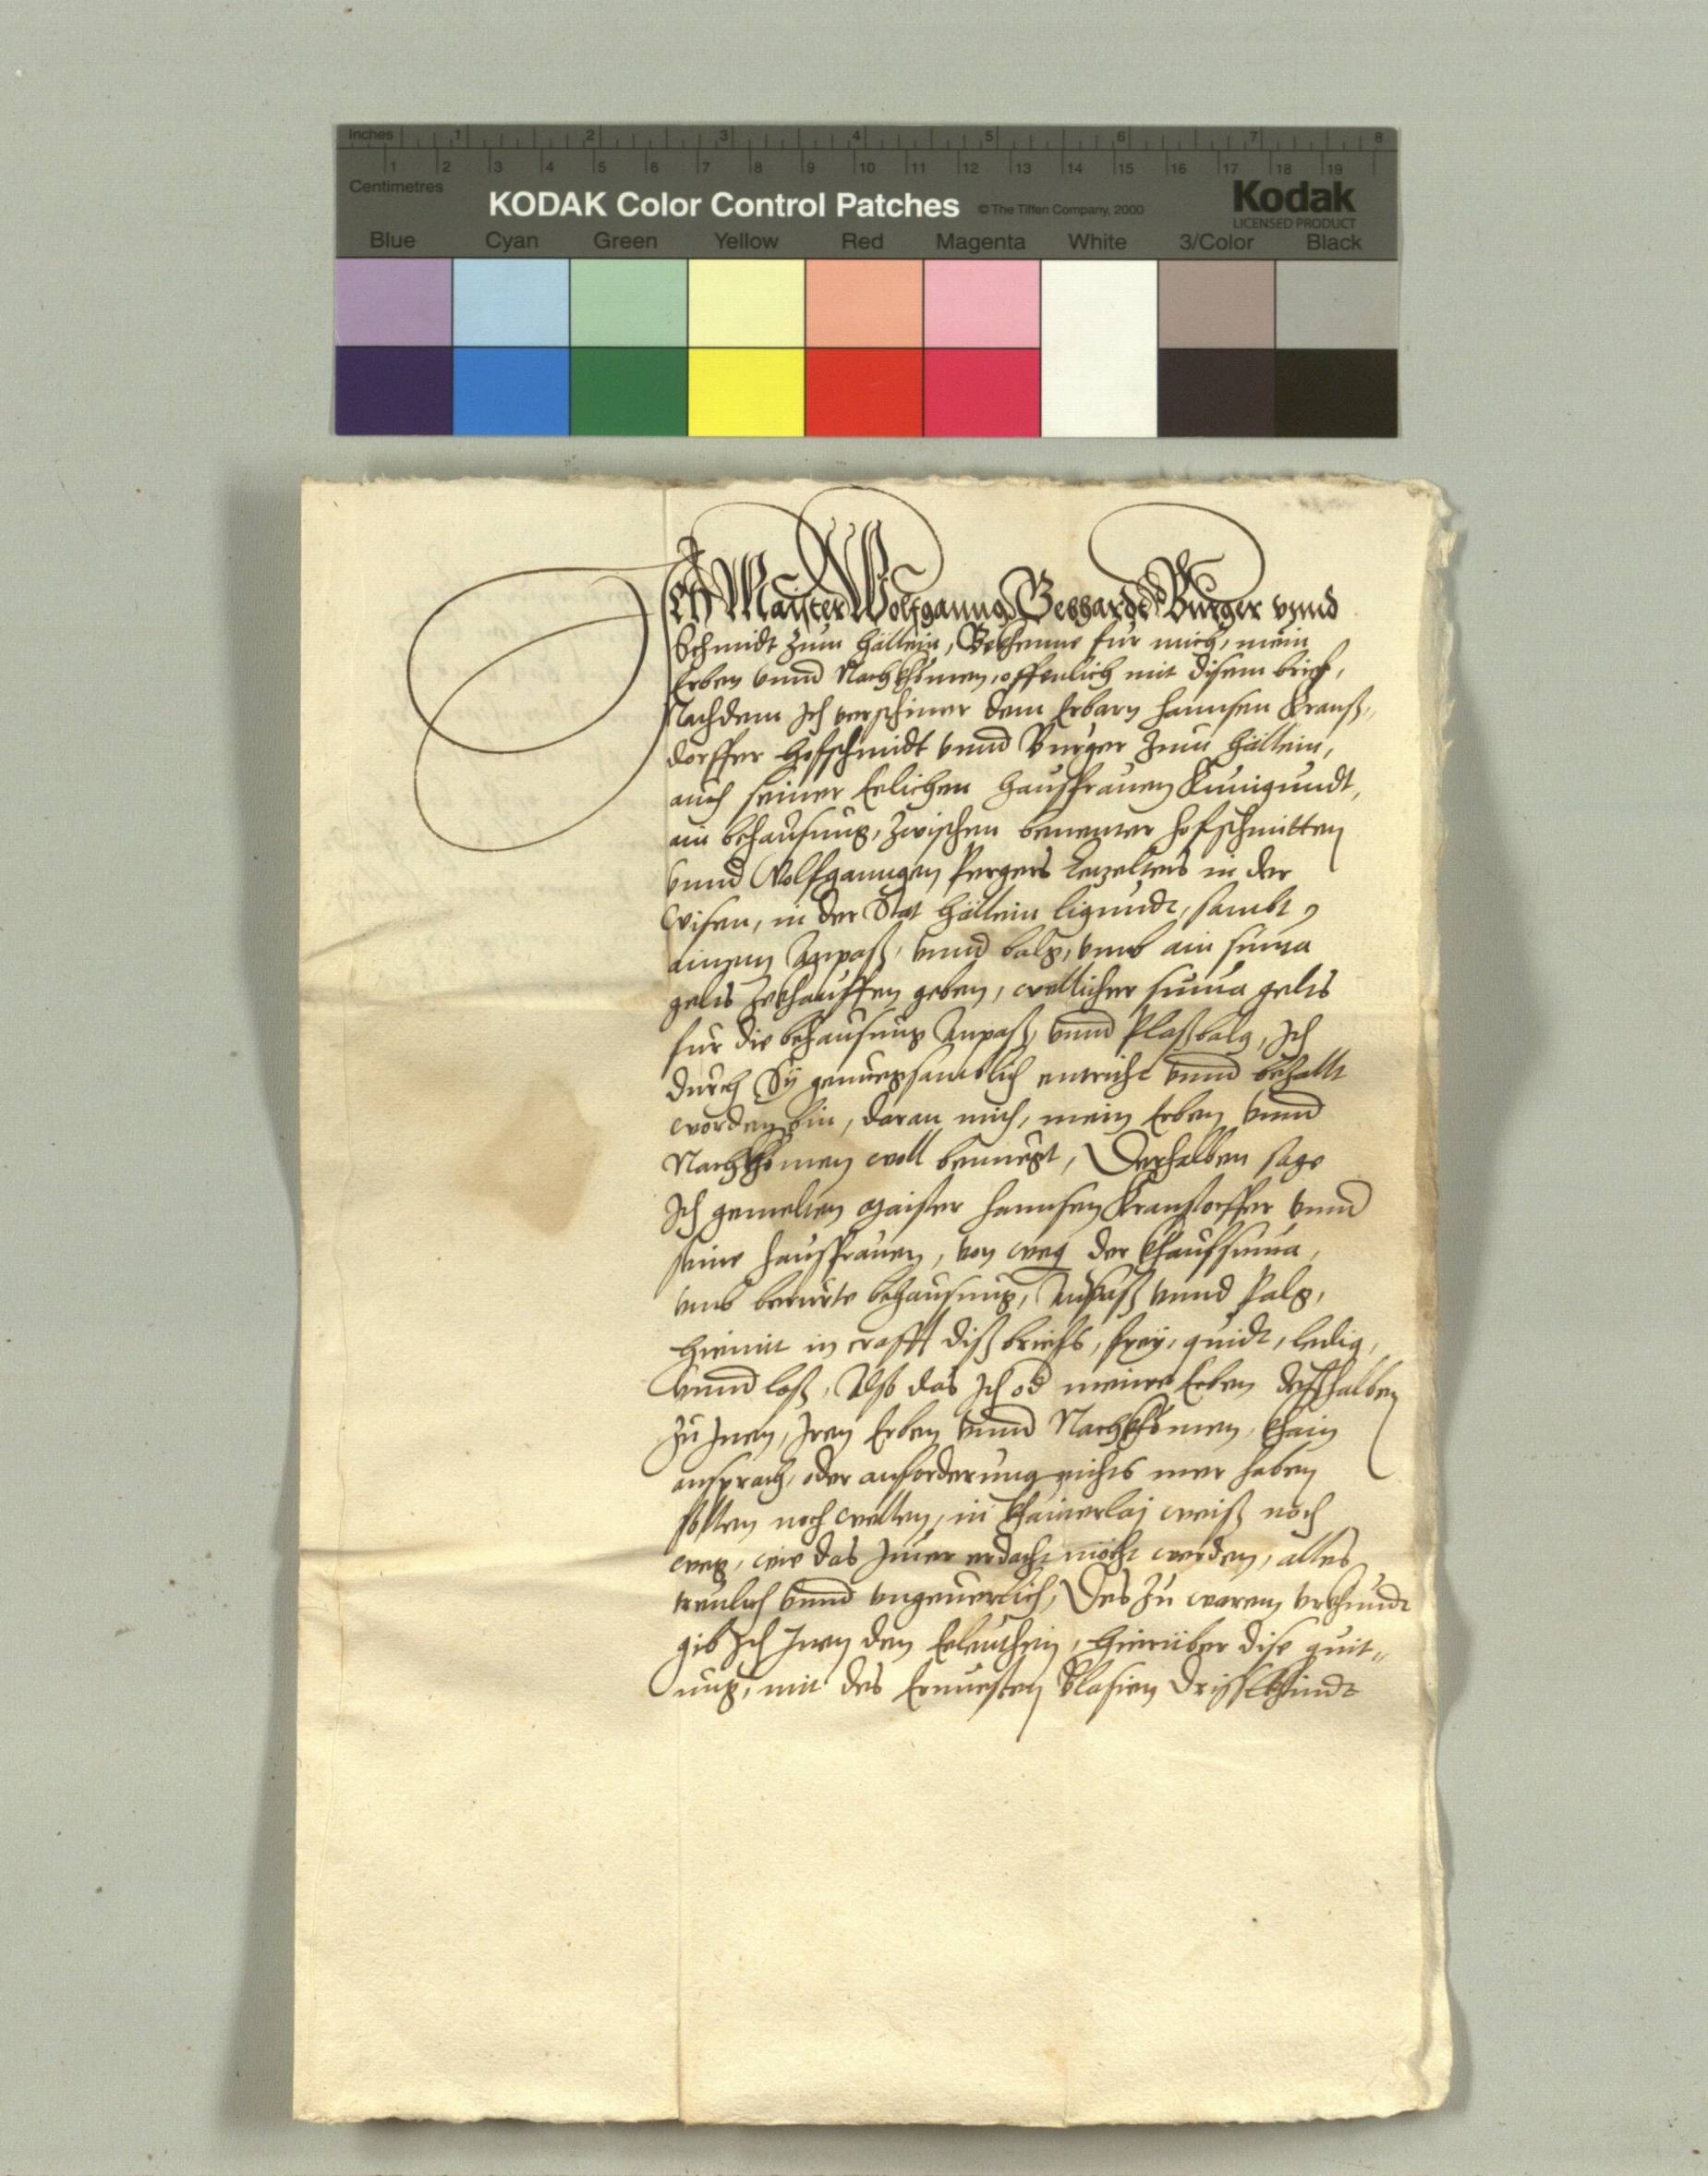 Inches 1 2 3 4 5 6 7 8
1 2 3 4 5 6 7 8 9 10 11 12 13 14 15 16 17 18 19
Centimetres
KODAK Color Control Patches © The Tiffen Company, 2000 Kodak
LICENSED PRODUCT
Blue Cyan Green Yellow Red Magenta White 3/Color Black
Ich Maister Wolfganng Gebhardt Burger vnnd
Schmidt zum Hällein, Bekhenne für mich, mein
Erben vnnd Nachkhomen, offenlich mit disem brief,
Nachdem Ich verschiner dem Erbarn Hannsen Kranß„
dorffer Hofschmidt vnnd Burger zum Hällein,
auch seiner Eelichen Hausfrauen Kunigundt,
ain behausung, zwischen benenter hofschmitten
vnnd Wolfganngen Pergers Lezelters in der
Wisen, in der Stat Hällein ligundt, sambt
ainem Anpaß, vnnd balg, vmb ain suma
gelts zekhauffen geben, wellicher suma gelts
für die behausung Anpaß, vnnd Plaßbalg, Ich
durch Sy genuegsamblich entricht vnnd bezallt
worden bin, daran mich, mein Erben vnnd
Nachkhomen woll benuegt, Derhalben sage
Ich gemelten Maister Hannsen Kranstorffer vnnd
seine hausfrauen, von weg der khaufsuma,
vmb berürte behausung, Anpaß vnnd Palg,
hiemit in crafft diß briefs, frey, quidt, ledig,
vnnd loß, Also das Ich od meine Erben deßhalben
zu Inen, Iren Erben vnnd Nachkhomen, khain
ansprach, oder anforderung nichts mer haben
sollen noch wellen, in khainerlaj weiß noch
weg, wie das Imer erdacht möcht werden, alles
treulich vnnd vngeuerlich, Des zu warem vrkhundt
gib Ich Inen den Eeleuthein, hierüber dise quit„
ung, mit des Ernuesten Blasien